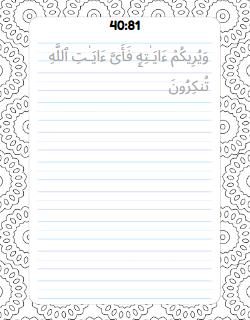 40:81
وَيُرِيكُمْ ءَايَـٰتِهِۦ فَأَىَّ ءَايَـٰتِ ٱللَّهِ
تُنكِرُونَ